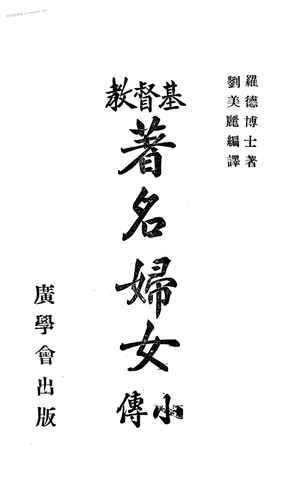 羅德博士著
劉美麗編譯
基督教
著名婦女
小傳
廣學會出版